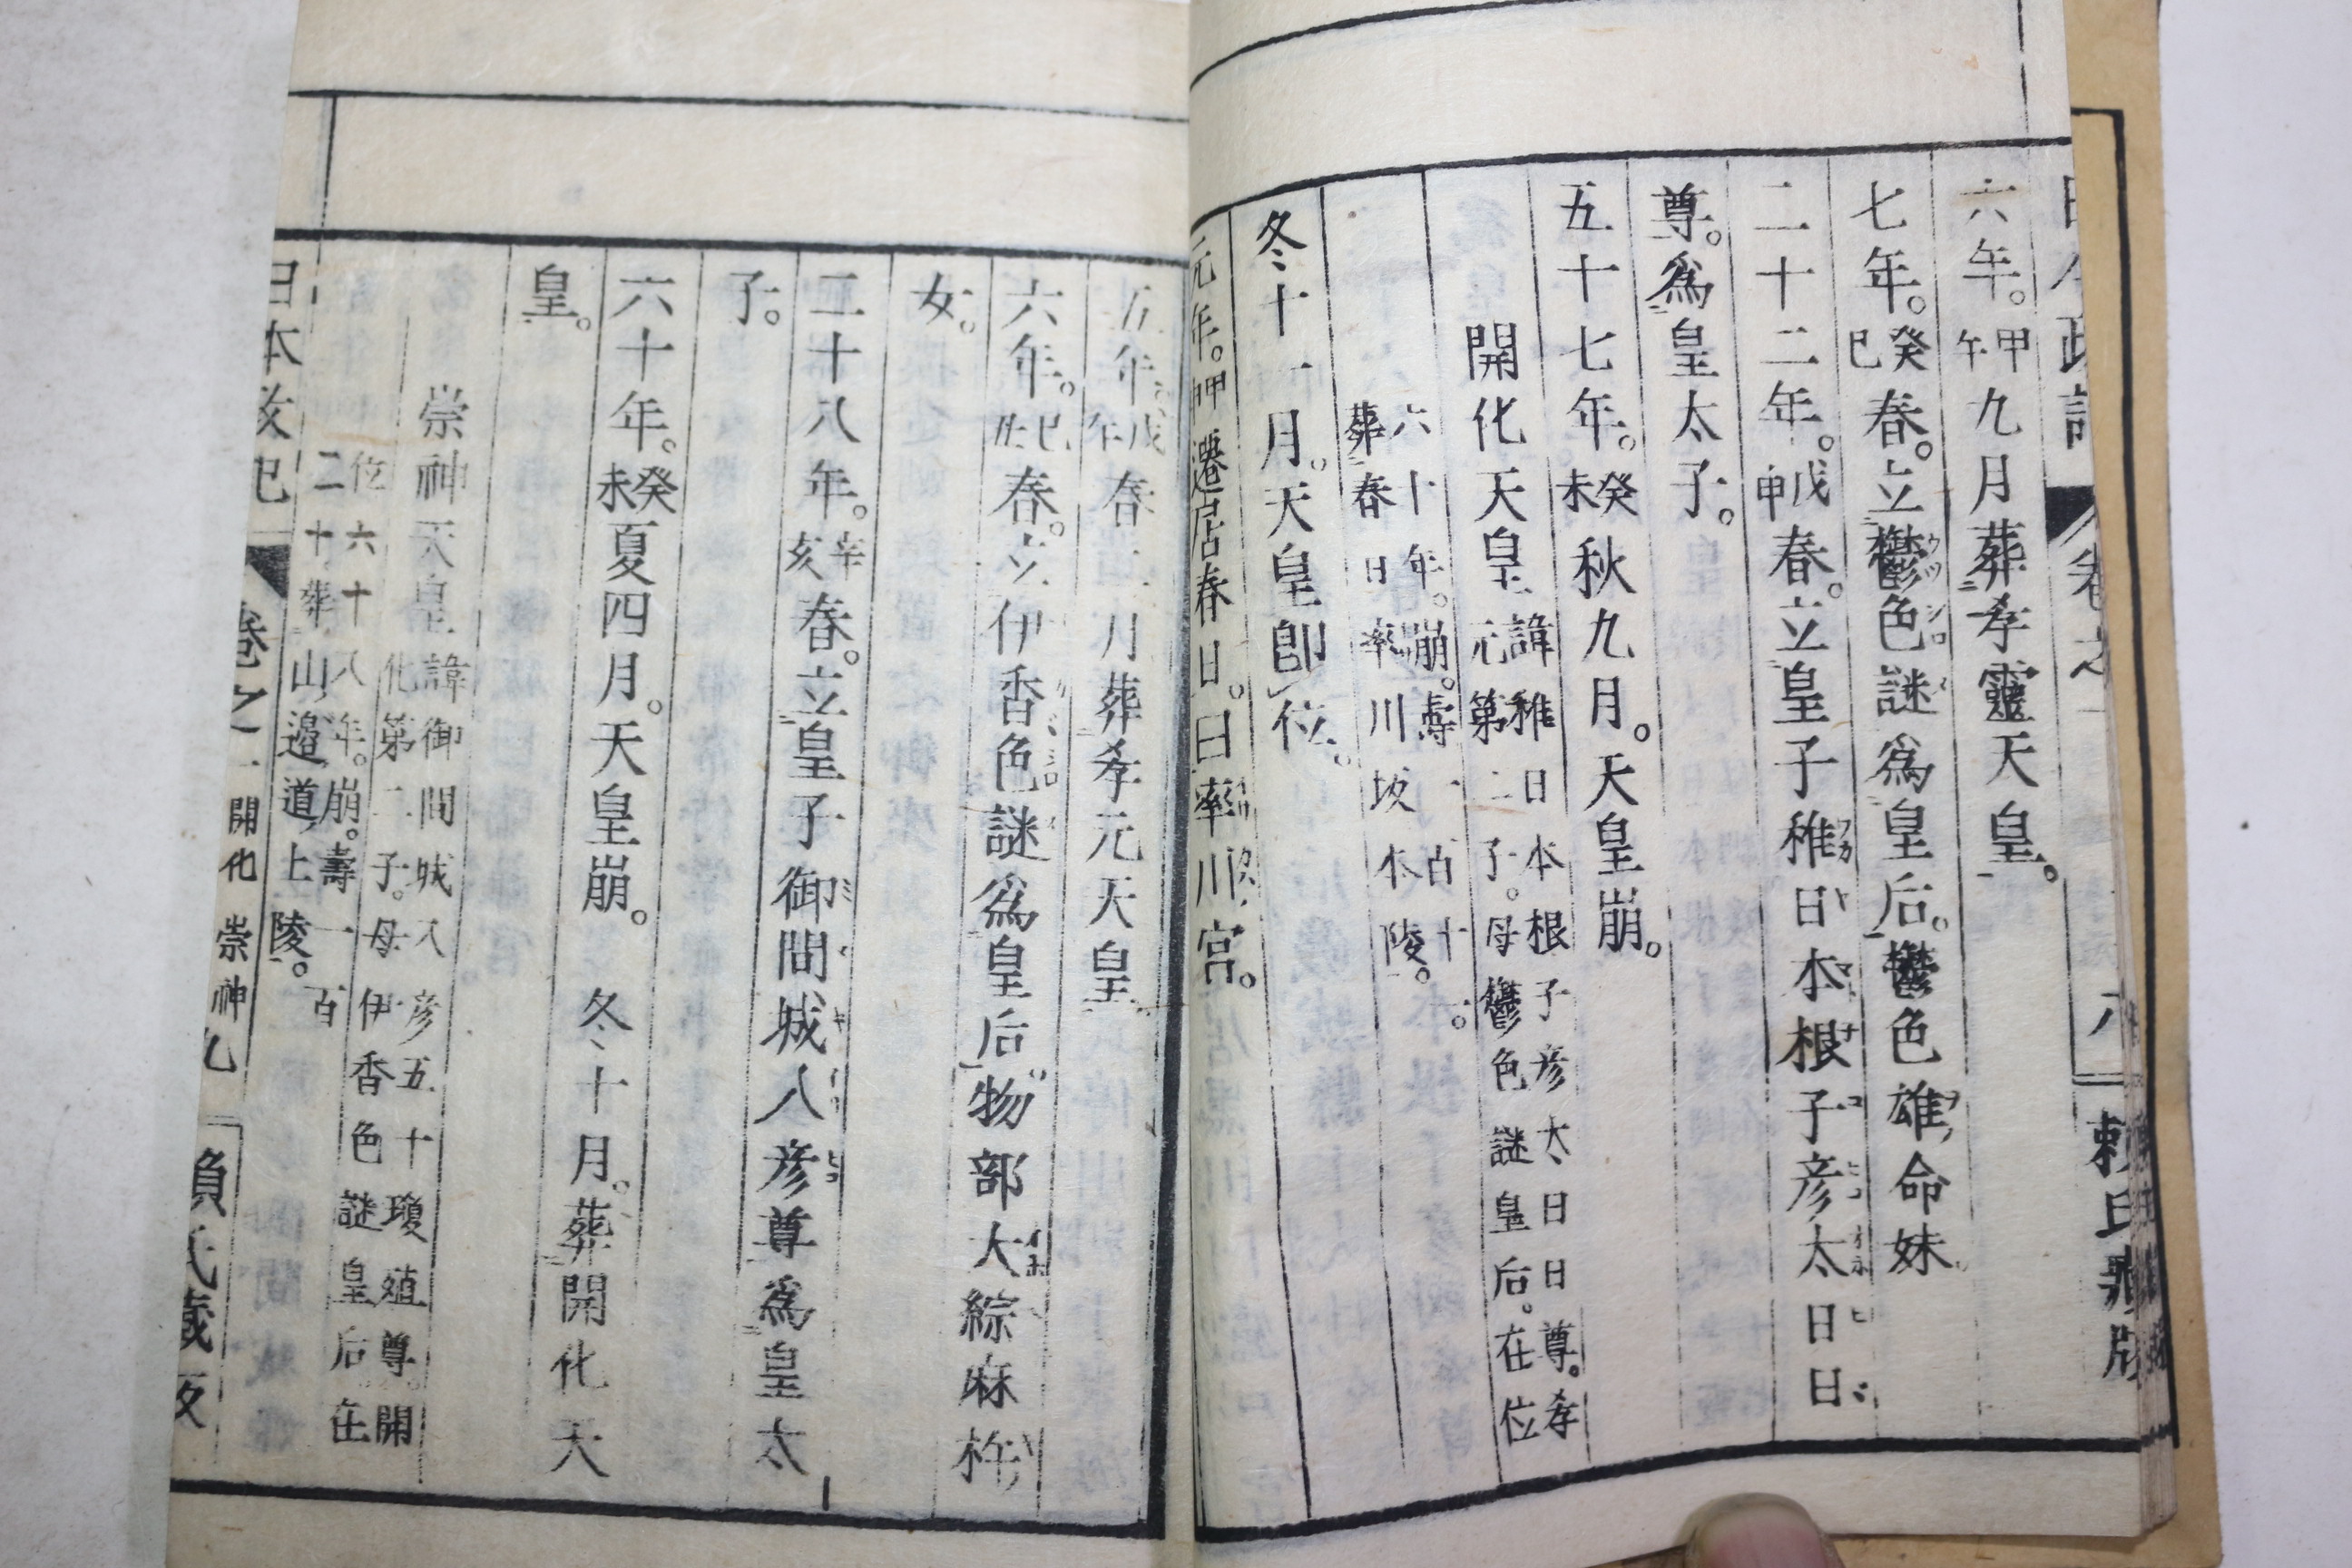 六年。甲午九月葬孝靈天皇。
七年。癸巳春。立鬱色謎爲皇后。鬱色雄命妹
二十二年。戊申春。立皇子稚日本根子彦太日日
尊。爲皇太子。
五十七年。癸未秋九月。天皇崩。
開化天皇諱稚日本根子彦太日日尊。孝
元第二子。母鬱色謎皇后。在位
六十年。崩。壽一百十一。
葬春日率川坂本陵。
冬十一月。天皇卽位。
元年。甲申遷居春日。曰率川宮。
五年。戊午春二月葬孝元天皇
六年。己春。立伊香色謎爲皇后。物部大綜麻杵
女。
二十八年。辛亥春。立皇子御間城入彦尊爲皇太
子。
六十年。癸未夏四月。天皇崩。冬十月。葬開化天
皇。
崇神天皇諱御間城入彦五十瓊殖尊。開
化第二子。母伊香色謎皇后在
位六十八年。崩。壽一百
二十葬山邉道上陵。
日本政記 卷之一 開化 崇神 九 頼氏藏版